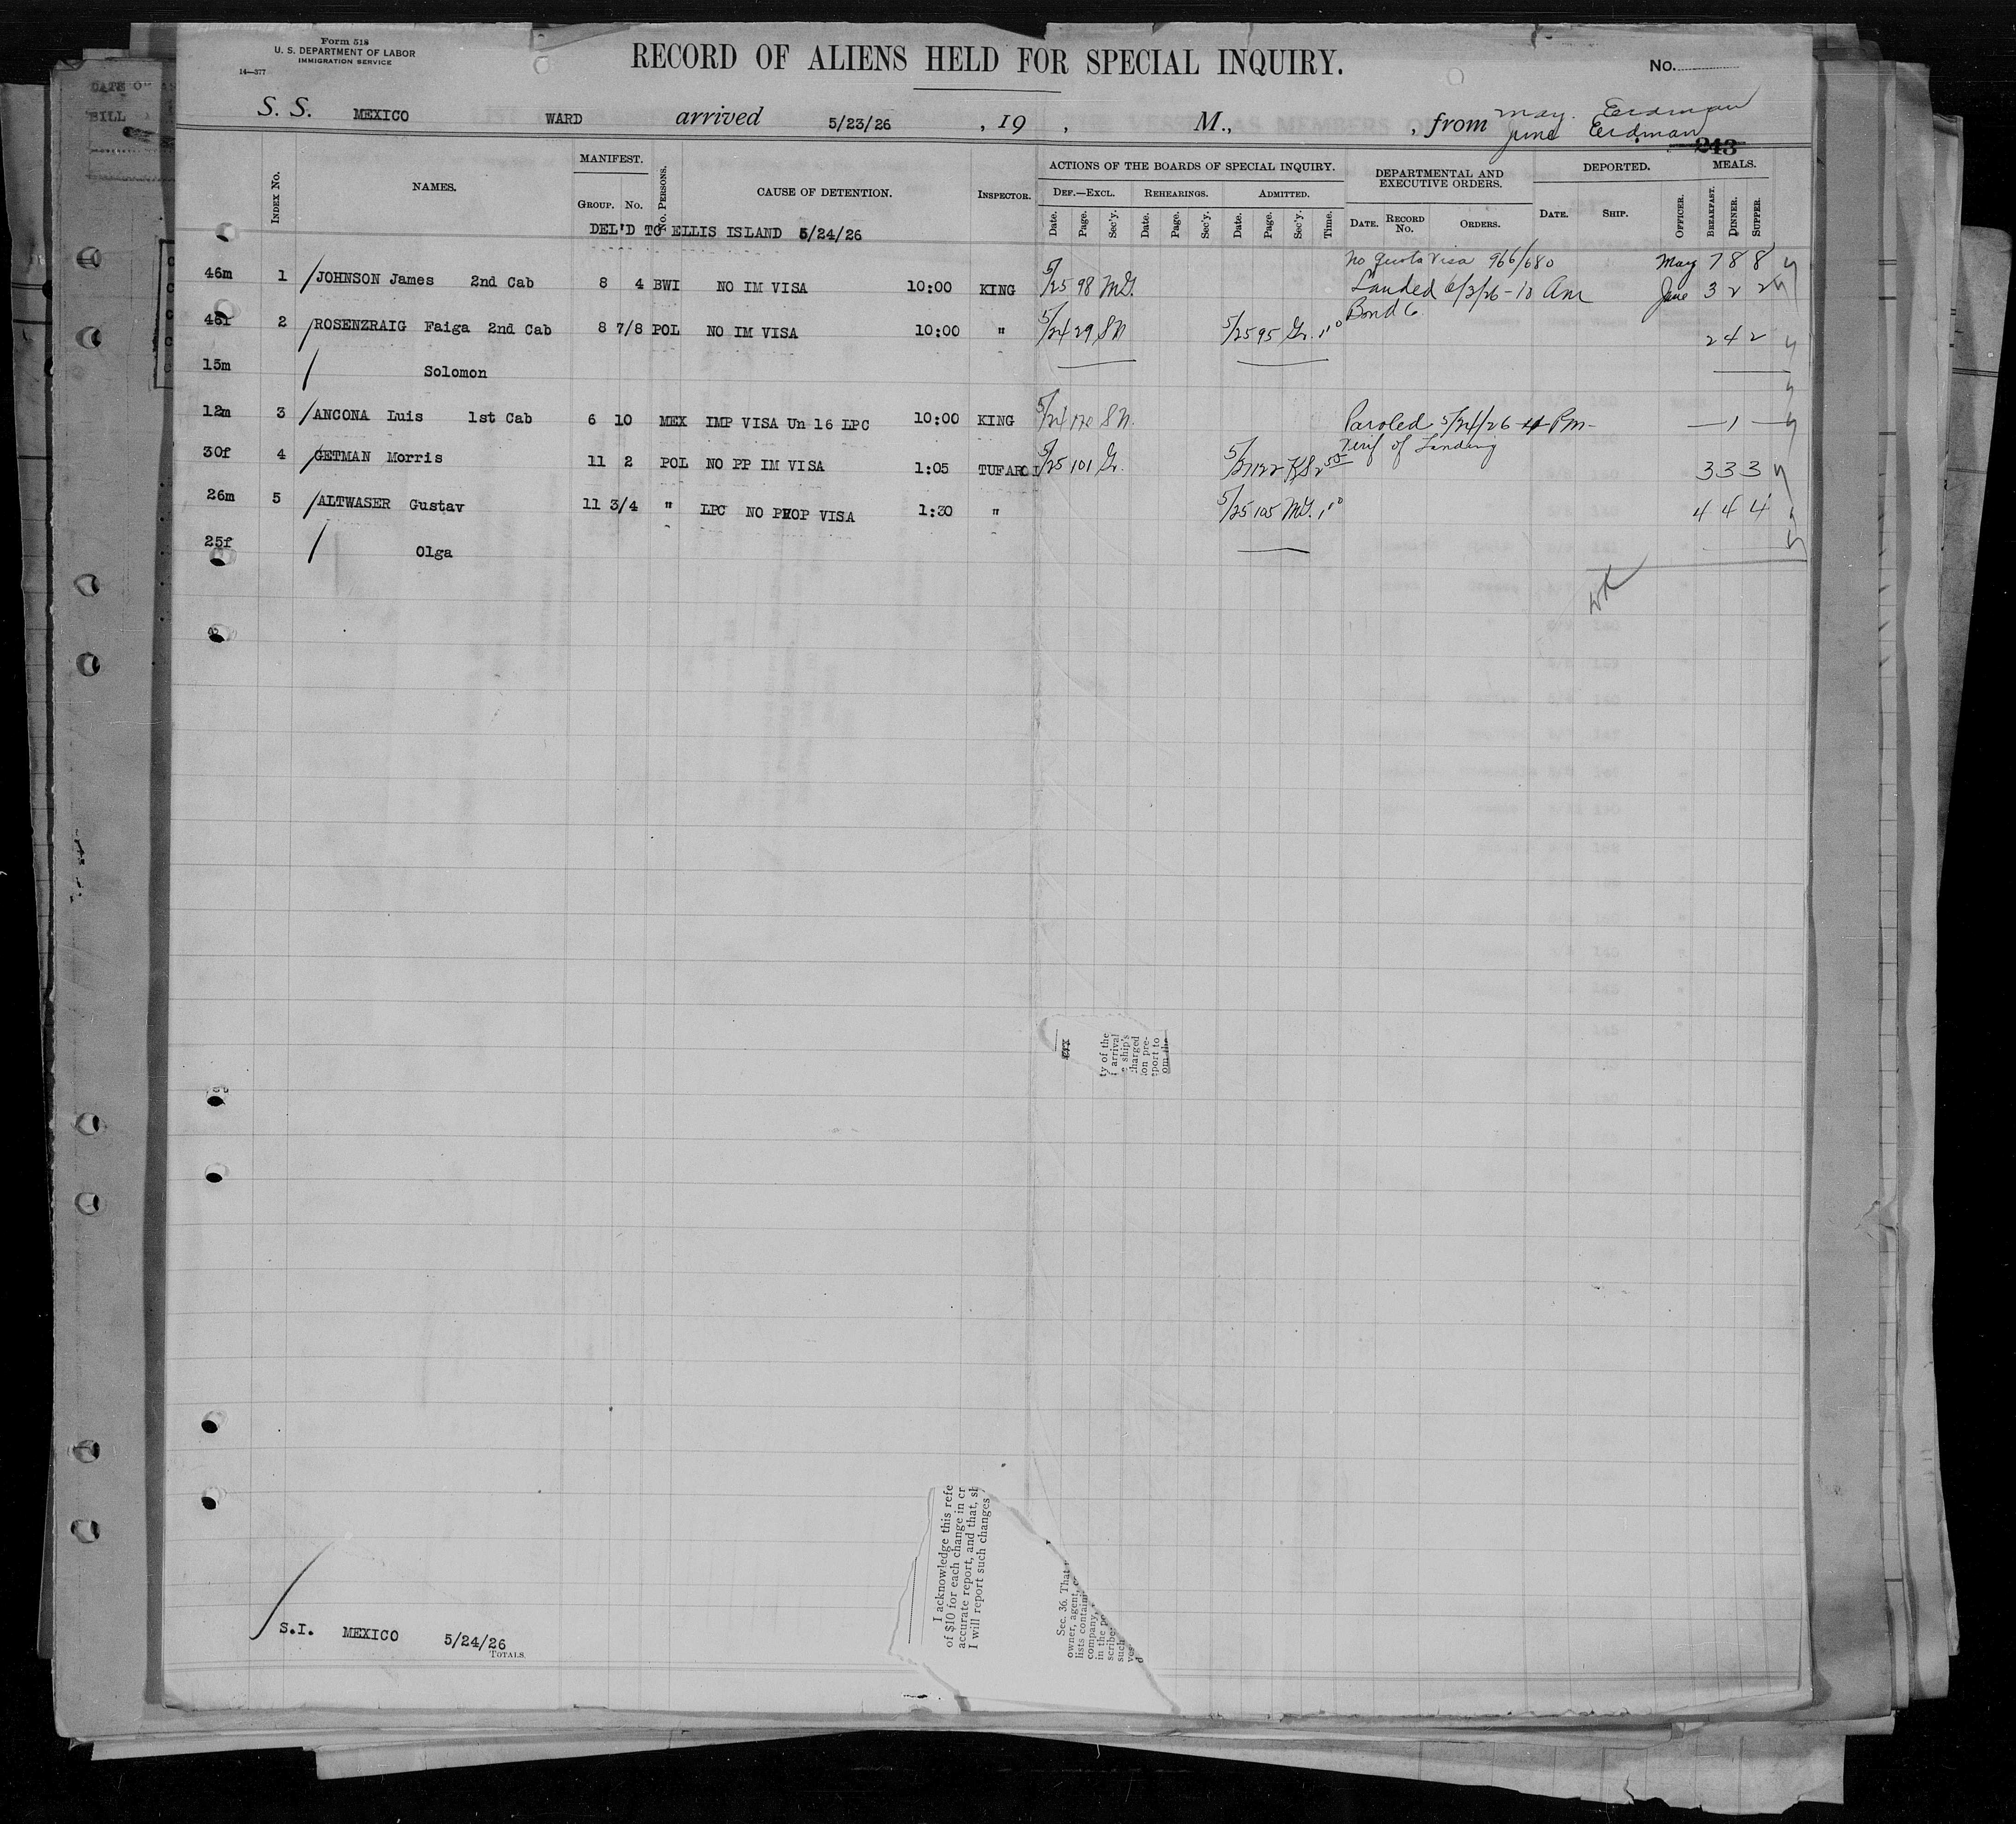 Form 518
U. S. DEPARTMENT OF LABOR
IMMIGRATION SERVICE
14—377
RECORD OF ALIENS HELD FOR SPECIAL INQUIRY.
No.
S. S. MEXICO WARD arrived 5/23/26 , 19 , M., , from May. Erdman
June Erdman
243
INDEX No. NAMES. MANIFEST. GROUP. No. No. PERSONS. CAUSE OF DETENTION. INSPECTOR. ACTIONS OF THE BOARDS OF SPECIAL INQUIRY. DEF.—EXCL. REHEARINGS. ADMITTED. DEPARTMENTAL AND EXECUTIVE ORDERS. DEPORTED. MEALS.
Date. Page. Sec'y. Date. Page. Sec'y. Date. Page. Sec'y. Time. DATE. RECORD No. ORDERS. DATE. SHIP. OFFICER. BREAKFAST. DINNER. SUPPER.
DEL'D TO ELLIS ISLAND 5/24/26
No Quota Visa 966/680 May 7 8 8
46m 1 JOHNSON James 2nd Cab 8 4 BWI NO IM VISA 10:00 KING 5/25 98 MG. Landed 6/3/26 - 10 Am June 3 2 2
Bond
46f 2 ROSENZRAIG Faiga 2nd Cab 8 7/8 POL NO IM VISA 10:00 " 5/24 29 SN 5/25 95 Gr. 1 10 2 4 2
15m Solomon
12m 3 ANCONA Luis 1st Cab 6 10 MEX IMP VISA Un 16 LPC 10:00 KING 5/24 170 SN. Paroled 5/24/26 4 Pm — 1 —
Verif of Landing
30f 4 GETMAN Morris 11 2 POL NO PP IM VISA 1:05 TUFAROI 5/25 101 Gr. 5/27 122 KS 2 55 3 3 3
26m 5 ALTWASER Gustav 11 3/4 " LPC NO PROP VISA 1:30 " 5/25 105 MG. 1 10 4 4 4
25f Olga
ty of the
arrival
ship's
charged
ion pre-
port to
om the
I acknowledge this refe
of $10 for each change in cr
accurate report, and that, sh
I will report such changes
Sec. 36. That
owner, agent,
lists containi
company,
in the po
scribe
such
ves
S.I. MEXICO 5/24/26
TOTALS.
DATE OF
BILL